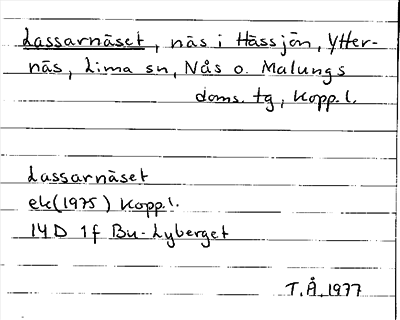 Lassarnäset, näs i Hässjön, Ytter-
näs, Lima sn, Nås o. Malungs
doms. tg, Kopp.l.
Lassarnäset
ek(1975) Kopp.l.
14D 1f Bu-Lyberget
T.Å.1977